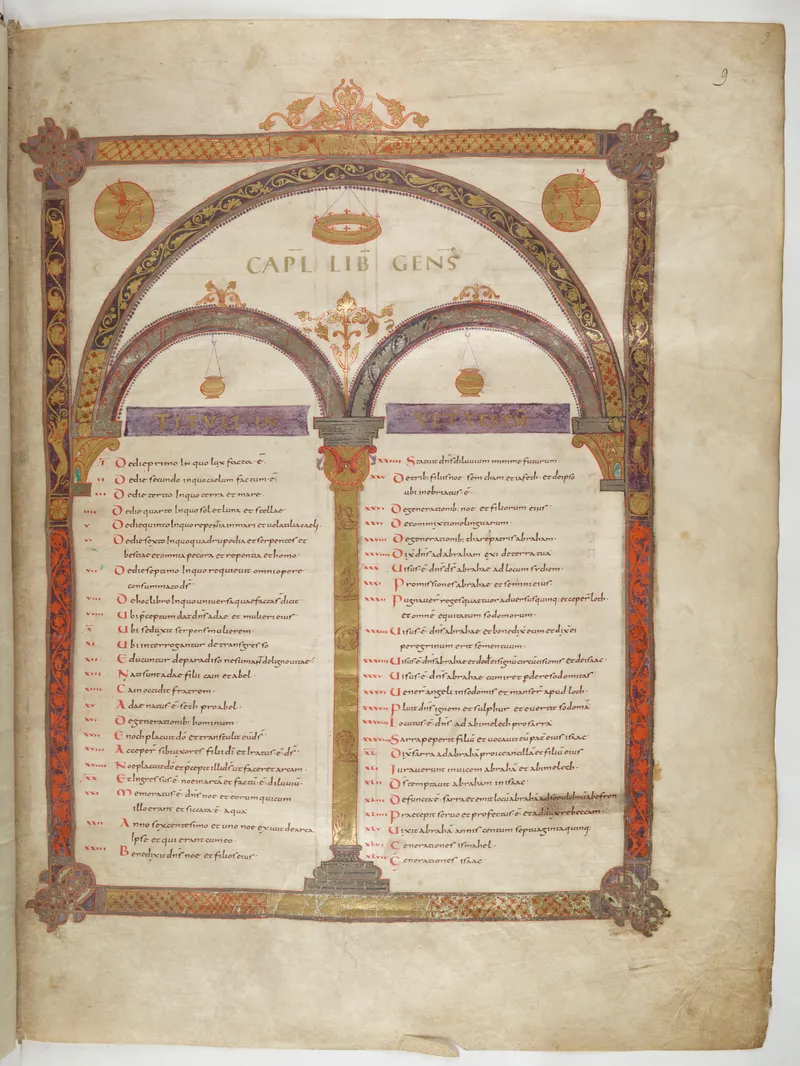 9
CAPL̄ LIB̄ GENS̄
TITULI IN
ı De die primo In quo lux facta ē·
ıı De die secundo in quo caelum factum ē·
ııı De die tertio In quo terra et mare·
De die quarto In quo sol et luna et stellae
v De die quinto In quo reptilia in mari et volatilia caeli·
vı De die sexto In quo quadrupedia et serpentes et
bestiae et omnia pecora et repentia et homo·
vıı De die septimo In quo requievit omni opere
consummato dš·
vııı De hoc libro In quo universa quae facta s dicit·
vıııı Ubi pceptum dat dns adae et mulieri eius·
x Ubi seduxit serpens mulierem·
xı Ubi interrogantur de transgresso
xıı Educuntur de paradiso ne sumant de ligno vitae·
xııı Nati sunt adae filii cain et abel·
xıııı Cain occidit fratrem·
xv Adae natus ē seth pro abel·
xvı De generationib: hominum·
xvıı Enoch placuit dō et transtulit eū dš·
xvııı Acceper sibi uxores filii dī et Iratus ē dš·
xvıııı Noe placuit dō et pcepit illi dš ut faceret arcam·
xx Et Ingressus ē noe in arcā et factū ē diluviū·
xxı Memoratus ē dns noe et eorum qui cum
illo erant et siccata ē aqua
xxıı Anno sexcentesimo et uno noe exivit de arca
Ipse et qui erant cum eo·
xxııı Benedixit dns noe et filios eius·
xxıııı Statuit dns diluvium minime futurum·
xxv De trib: filiis noe sem cham et iafeth· et de ipso
ubi inebriatus ē·
xxvı De generationib: noe et filiorum eius·
xxvıı De commixtione linguarum·
xxvııı De generationib: thare patris abraham·
xxvıııı Dix dns ad abraham exi de terra tua
xxx Uisus ē dns ds abrahae ad locum sychem·
xxxı Promissiones abrahae et semini eius·
xxxıı Pugnaver reges quattuor adversus quinq: et ceper loth·
et omnē equitatum sodomorum·
xxxııı Uisus ē dns abrahae et benedixit eum et dix ei
peregrinum erit semen tuum·
xxxıııı Uisus ē dns abrahae et dedit ei signū circūcisionis et de isaac·
xxxv Uisus ē dns abrahae cum iret pdere sodomitas
xxxvı Uener angeli in sodomis et manser apud loth·
xxxvıı Pluit dns ignem et sulphur et evertit sodomā
xxxvııı Locutus ē dns ad abimelech pro sarra
xxxvıııı Sarra peperit filiū et vocavit eū pat eius isaac
xl Dix sarra ad abrahā proice ancillā et filiū eius
xlı Iuraverunt invicem abrahā et abimelech·
xlıı Ds temptavit abraham in isaac
xlııı Defuncta ē sarra et emit locū abrahā ad sepulchrū ab efron
xlıııı Praecepit servo et profectus ē et adduxit rebeccam·
xlv Uixit abrahā annis centum septuaginta quinq:
xlvı Generationes ismahel·
xlvıı Generationes isaac·